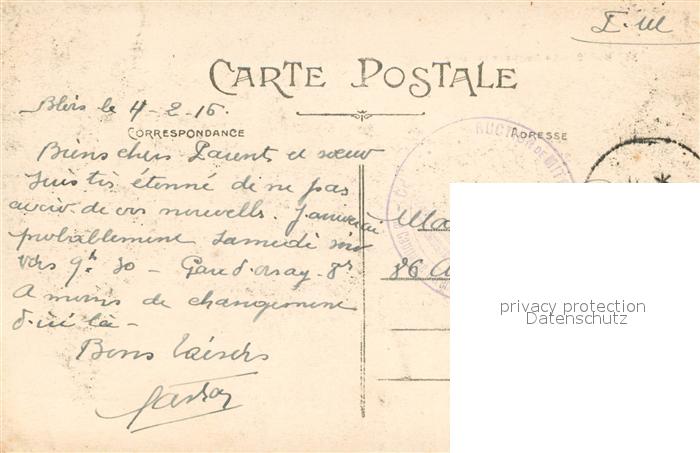 F.M
CARTE POSTALE
Blois le 4-2-16.
CORRESPONDANCE
ADRESSE
Biens chers Parents et sœur
Suis très étonné de ne pas
avoir de vos nouvelles. J'arriverai
probablement Samedi soir
vers 9h 30 - Gare d'orsay -
A moins de changement
d'ici là -
Bons baisers
Gaston
86
privacy protection
Datenschutz